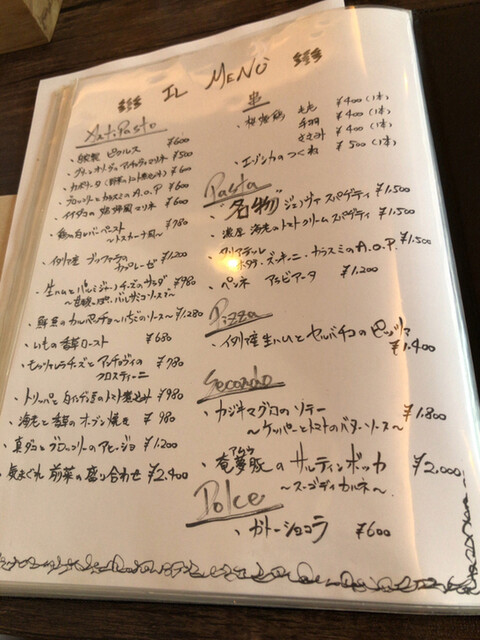 IL MENÙ
Anti Pasto
・自家製 ピクルス ¥600
・グリーンオリーブのアンチョビマリネ ¥500
・カポナータ(野菜のトマト煮込み) ¥600
・ブロッコリーとカラスミの A.O.P ¥600
・イイダコの マリネ ¥600
・鶏の白レバーペースト ¥780
〜トスカーナ風〜
・イタリア産 ブッファラの ¥1,200
カプレーゼ
・生ハムとパルミジャーノチーズのサラダ ¥980
〜甘酸っぱい バルサミコソースで〜
・鮮魚のカルパッチョ 〜いちごのソース〜 ¥1,280
・いもの香草ロースト ¥680
・モッツァレラチーズとアンチョヴィの ¥780
クロスティーニ
・トリッパと白いんげん豆のトマト煮込み ¥980
・海老と香草のオーブン焼き ¥980
・真ダコとブロッコリーのアヒージョ ¥1,200
・気まぐれ 前菜の盛り合わせ ¥2,400
串
もも ¥400(1本)
手羽 ¥400(1本)
ささみ ¥400(1本)
・エゾシカのつくね ¥500(1本)
Pasta
・"名物"ジェノヴァ スパゲティ ¥1,500
・濃厚 海老のトマトクリームスパゲティ ¥1,500
ホタテ・ズッキーニ・カラスミのA.O.P ¥1,500
・ペンネ アラビアータ ¥1,200
Pizza
・イタリア産生ハムとセルバチコのピッツァ
¥1,400
Secondo
・カジキマグロのソテー ¥1,800
〜ケッパーとトマトのバターソース〜
・奄夢豚のサルティンボッカ ¥2,000
アムウ
〜スーゴディカルネ〜
Dolce
・ガトーショコラ ¥600